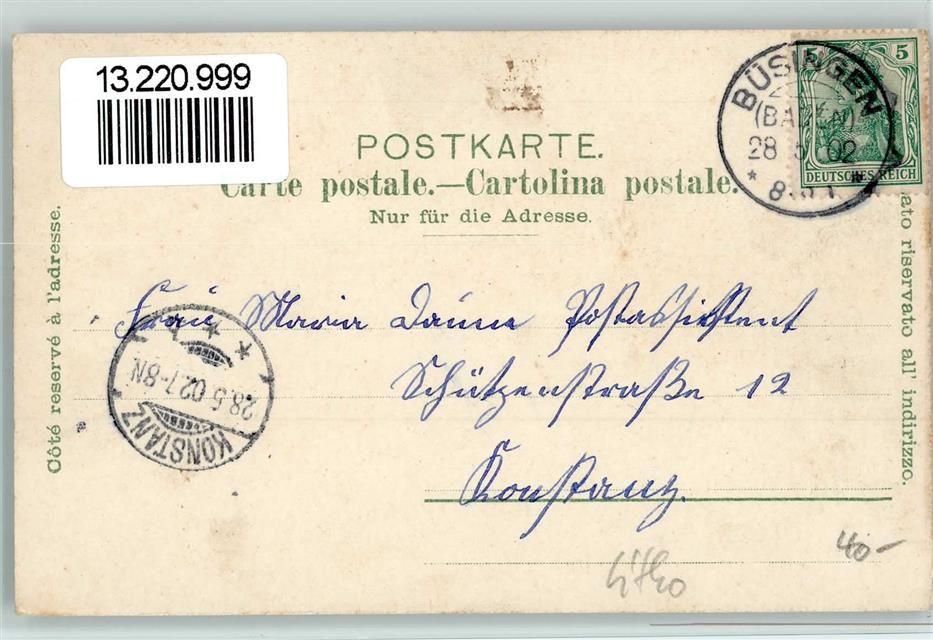 13.220.999
5 5
DEUTSCHES REICH
BÜSINGEN
(BADEN)
28 5 02
POSTKARTE.
Carte postale.—Cartolina postale.
Nur für die Adresse.
Côté reservé à l'adresse.
ato riservato all' indirizzo.
Frau Maria Daume Postassistent
Schützenstraße 12
Konstanz.
KONSTANZ
28.5.02.7-8N
Litho
40-